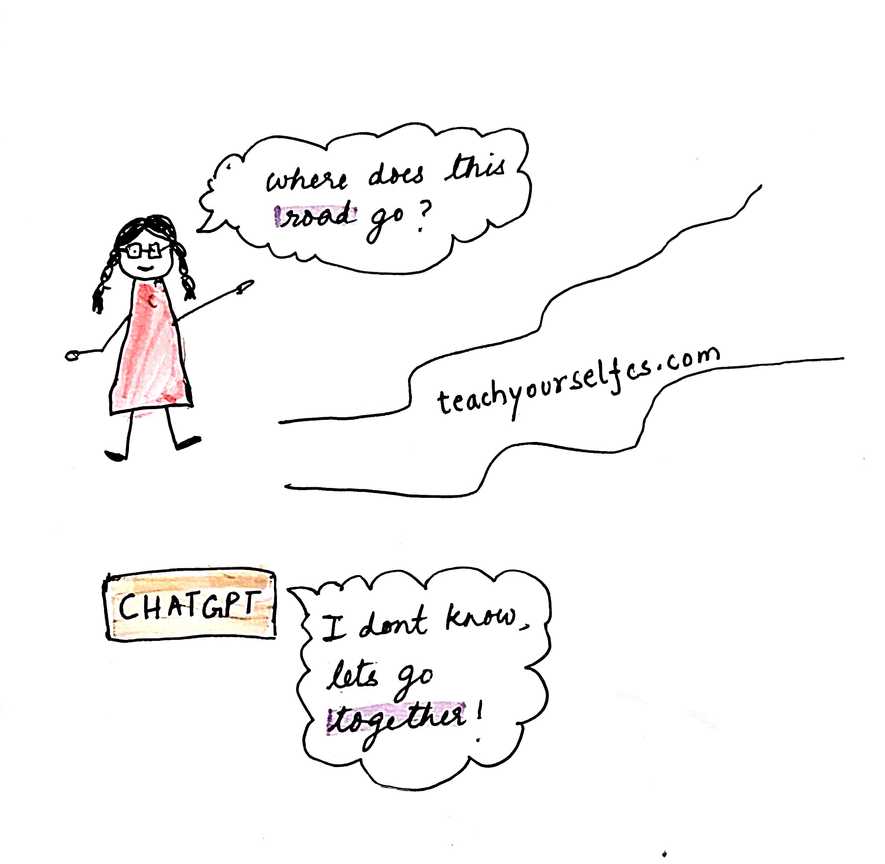 where does this
road go?
teachyourselfcs.com
CHATGPT
I dont know,
lets go
together!